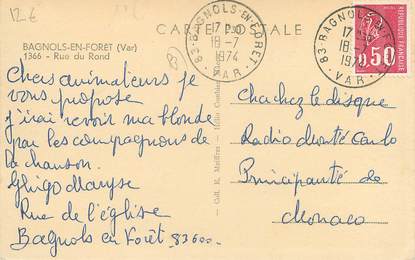 12€
CARTE POSTALE
BAGNOLS-EN-FORET (Var)
1366 - Rue du Rond
83 - BAGNOLS-EN-FORET
18-7
1974
VAR
83 - BAGNOLS-EN-FORET
18-7
1974
VAR
0,50
Chers animateurs je
vous propose
j'irai revoir ma blonde
par les compagnons de
la chanson.
Ghigo Maryse
Rue de l'église
Bagnols en Forêt 83600
Coll. E. Meiffret
Chachez le disque
Radio Monté Carlo
Principauté de
Monaco